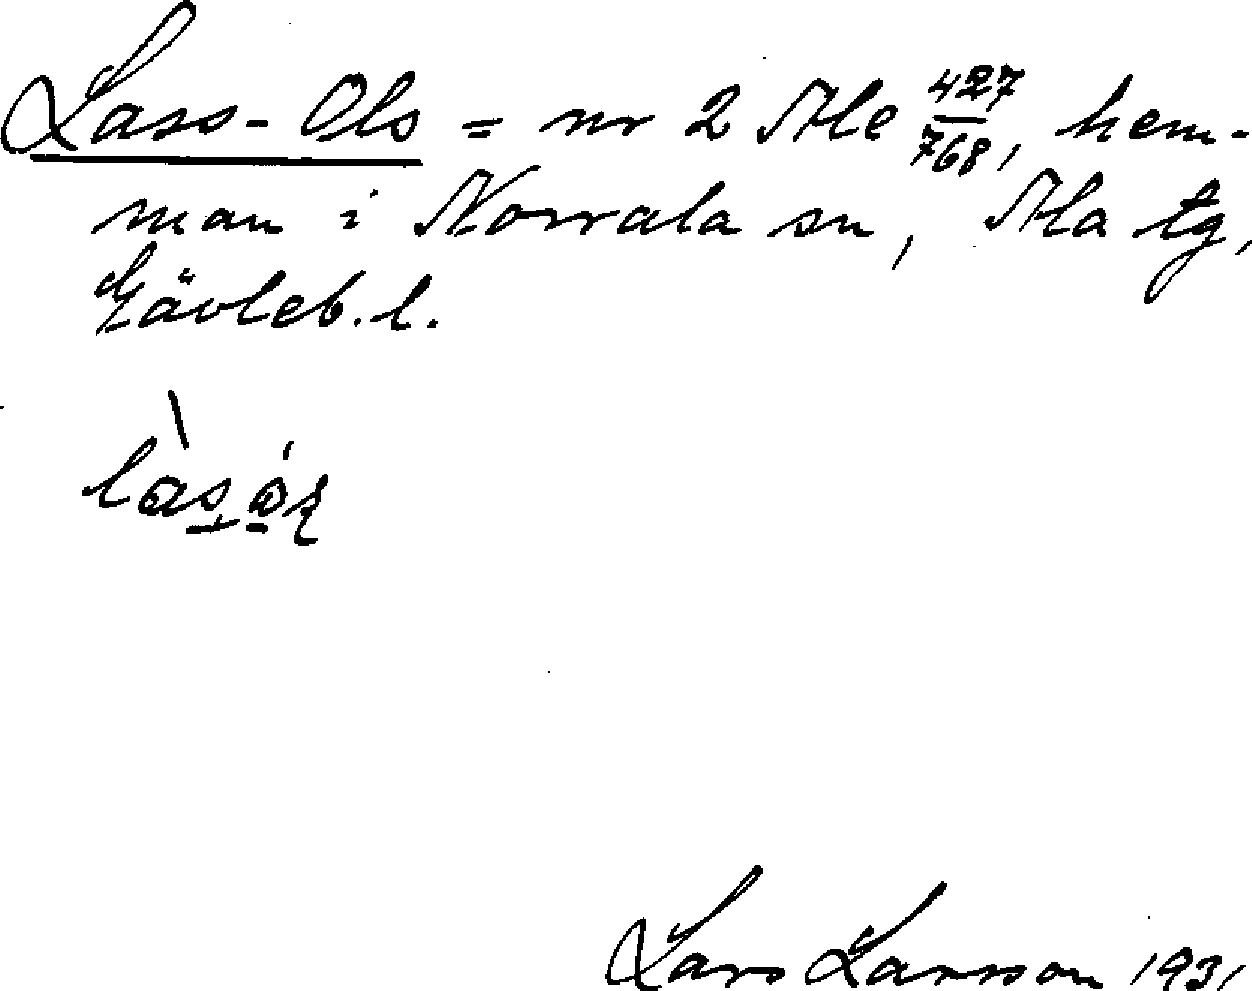 Lass-Ols = nr 2 Ale 427/768, hem-
man i Norrala sn, Ala tg,
Gävleb. l.
Lars Larsson 1931